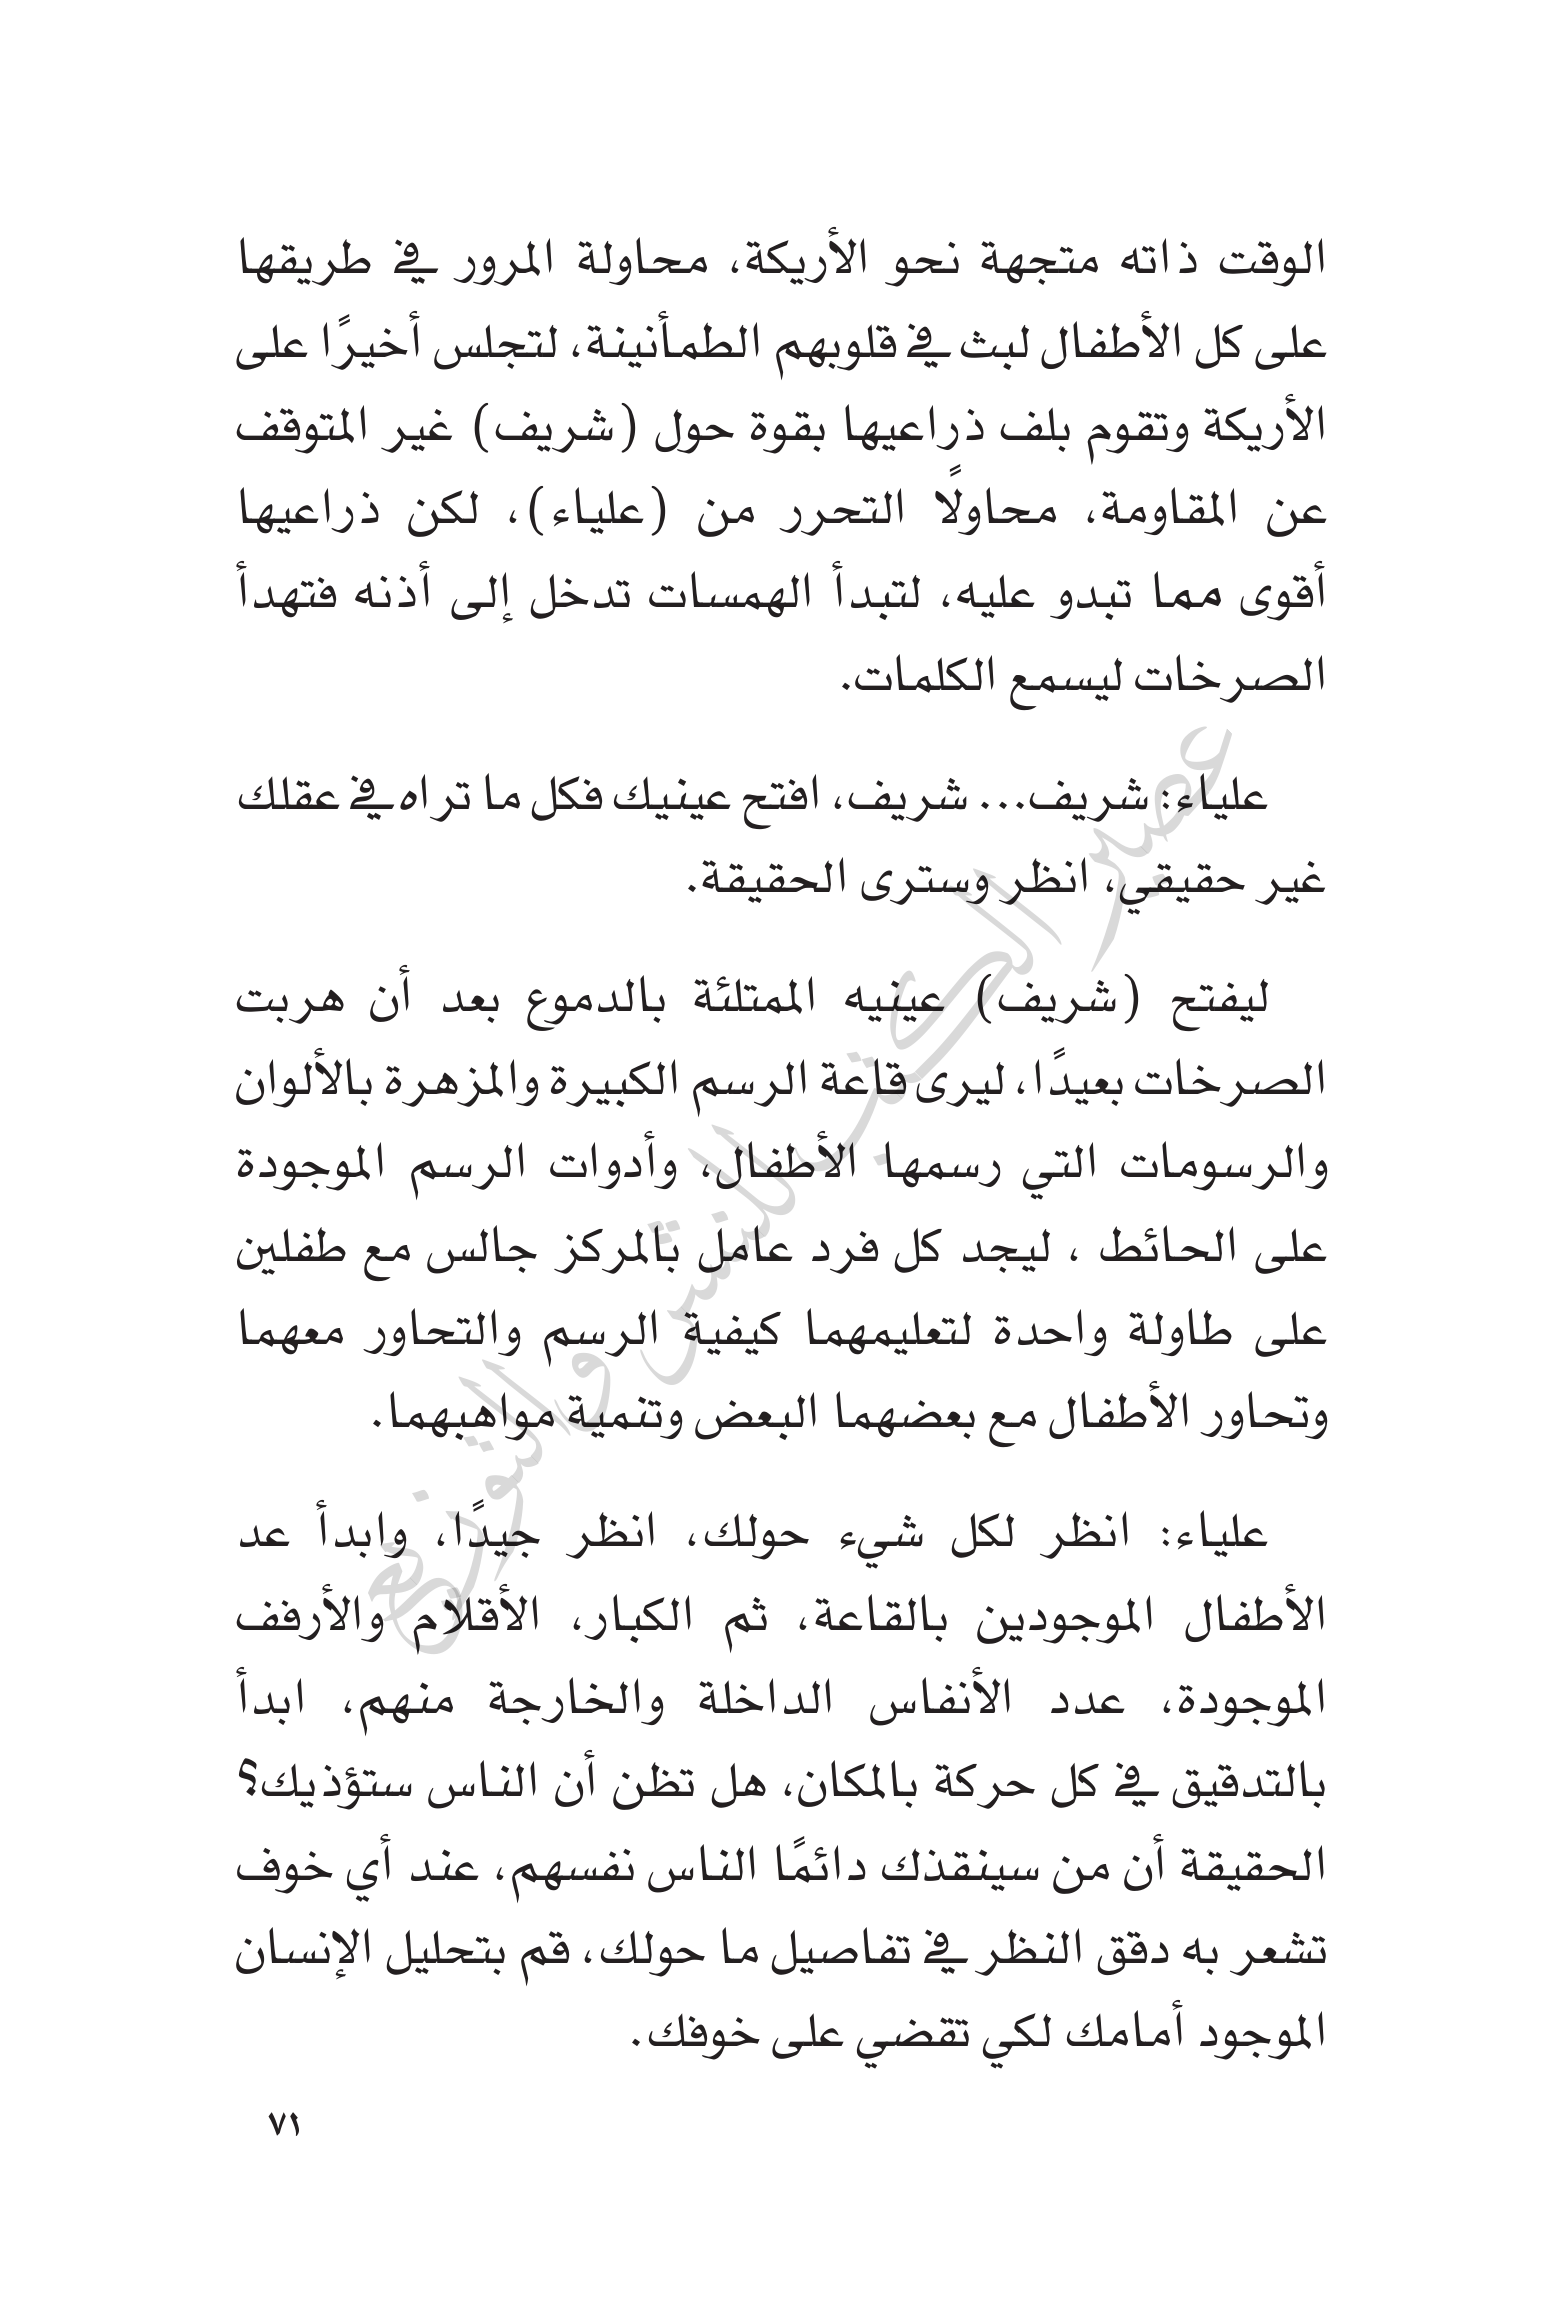 الوقت ذاته متجهة نحو الأريكة، محاولة المرور في طريقها
على كل الأطفال لبث في قلوبهم الطمأنينة، لتجلس أخيرًا على
الأريكة وتقوم بلف ذراعيها بقوة حول (شريف) غير المتوقف
عن المقاومة، محاولًا التحرر من (علياء)، لكن ذراعيها
أقوى مما تبدو عليه، لتبدأ الهمسات تدخل إلى أذنه فتهدأ
الصرخات ليسمع الكلمات.
علياء: شريف... شريف، افتح عينيك فكل ما تراه في عقلك
غير حقيقي، انظر وسترى الحقيقة.
ليفتح (شريف) عينيه الممتلئة بالدموع بعد أن هربت
الصرخات بعيدًا، ليرى قاعة الرسم الكبيرة والمزهرة بالألوان
والرسومات التي رسمها الأطفال، وأدوات الرسم الموجودة
على الحائط ، ليجد كل فرد عامل بالمركز جالس مع طفلين
على طاولة واحدة لتعليمهما كيفية الرسم والتحاور معهما
وتحاور الأطفال مع بعضهما البعض وتنمية مواهبهما.
علياء: انظر لكل شيء حولك، انظر جيدًا، وابدأ عد
الأطفال الموجودين بالقاعة، ثم الكبار، الأقلام والأرفف
الموجودة، عدد الأنفاس الداخلة والخارجة منهم، ابدأ
بالتدقيق في كل حركة بالمكان، هل تظن أن الناس ستؤذيك؟
الحقيقة أن من سينقذك دائمًا الناس نفسهم، عند أي خوف
تشعر به دقق النظر في تفاصيل ما حولك، قم بتحليل الإنسان
الموجود أمامك لكي تقضي على خوفك.
٧١
عصير الكتب للنشر والتوزيع